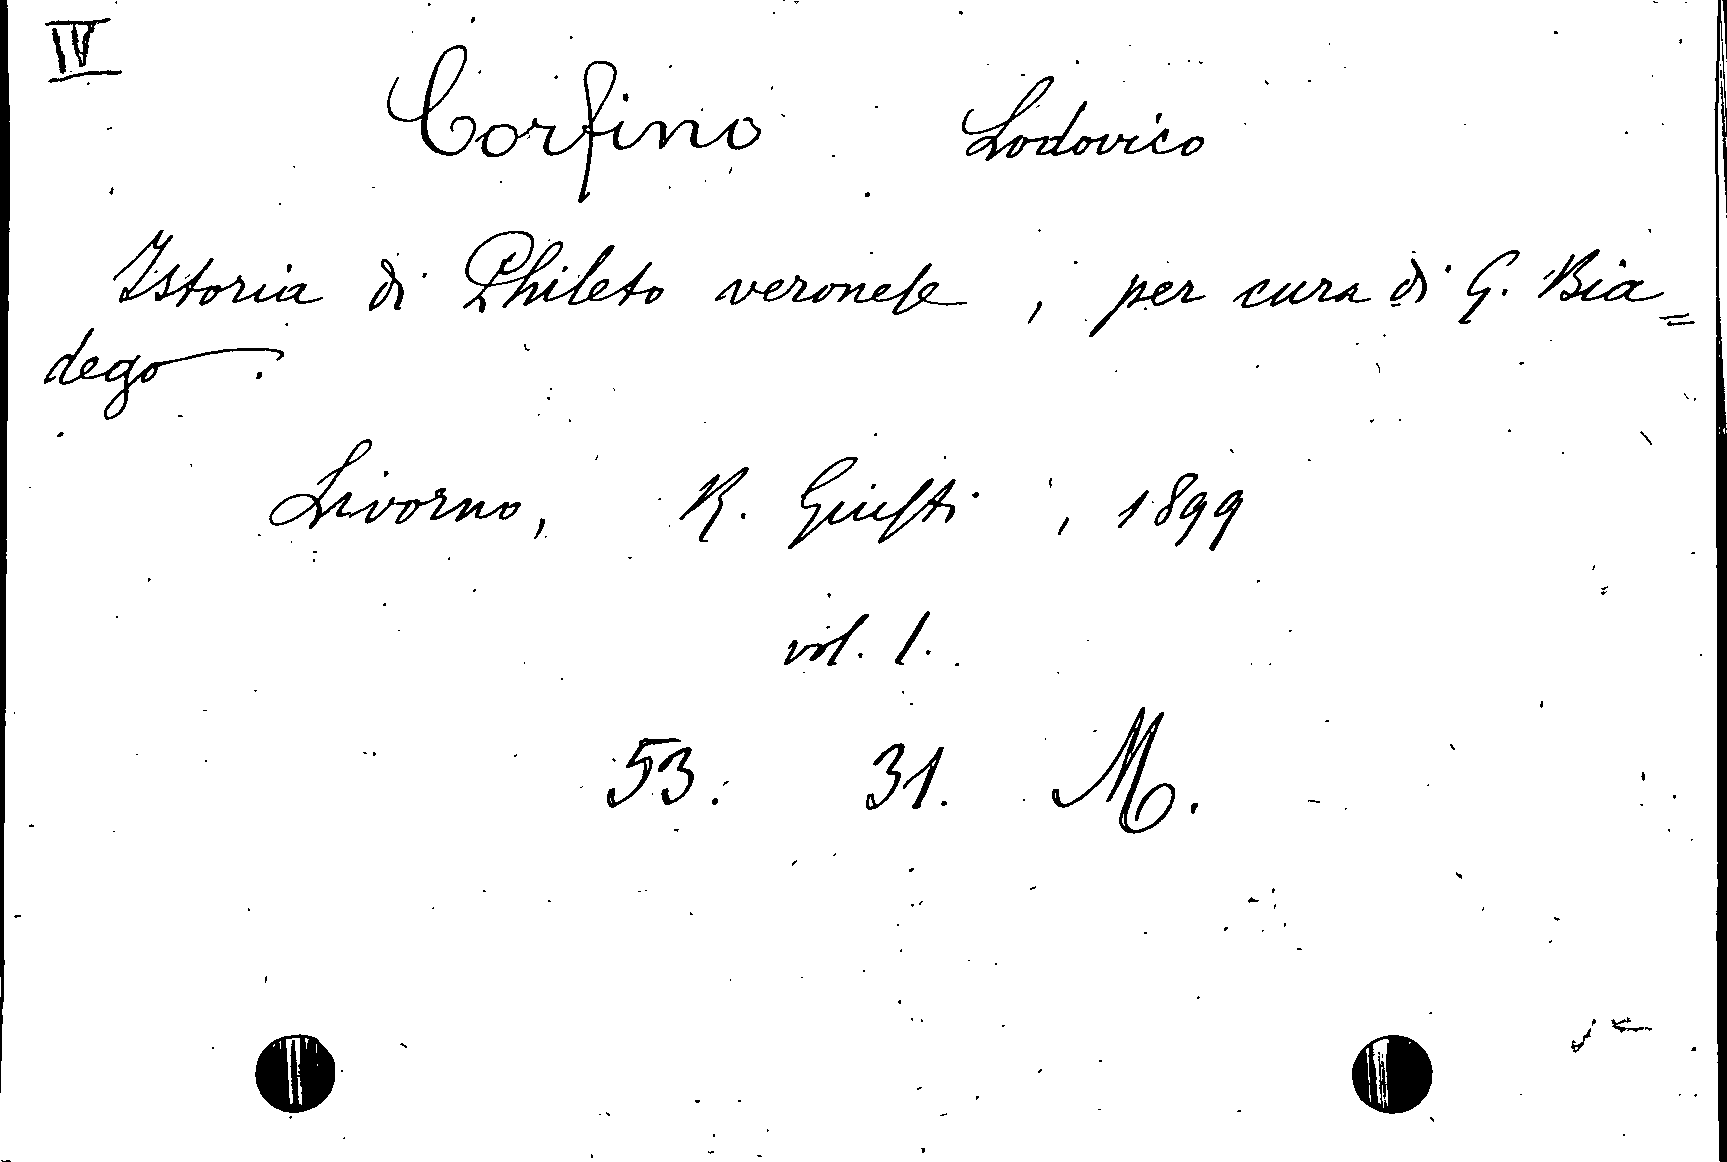 IV
Corfino Lodovico
Istoria di Phileto veronese, per cura di G. Bia=
dego.
Livorno, R. Giusti, 1899
vol. 1.
53. 31. M.